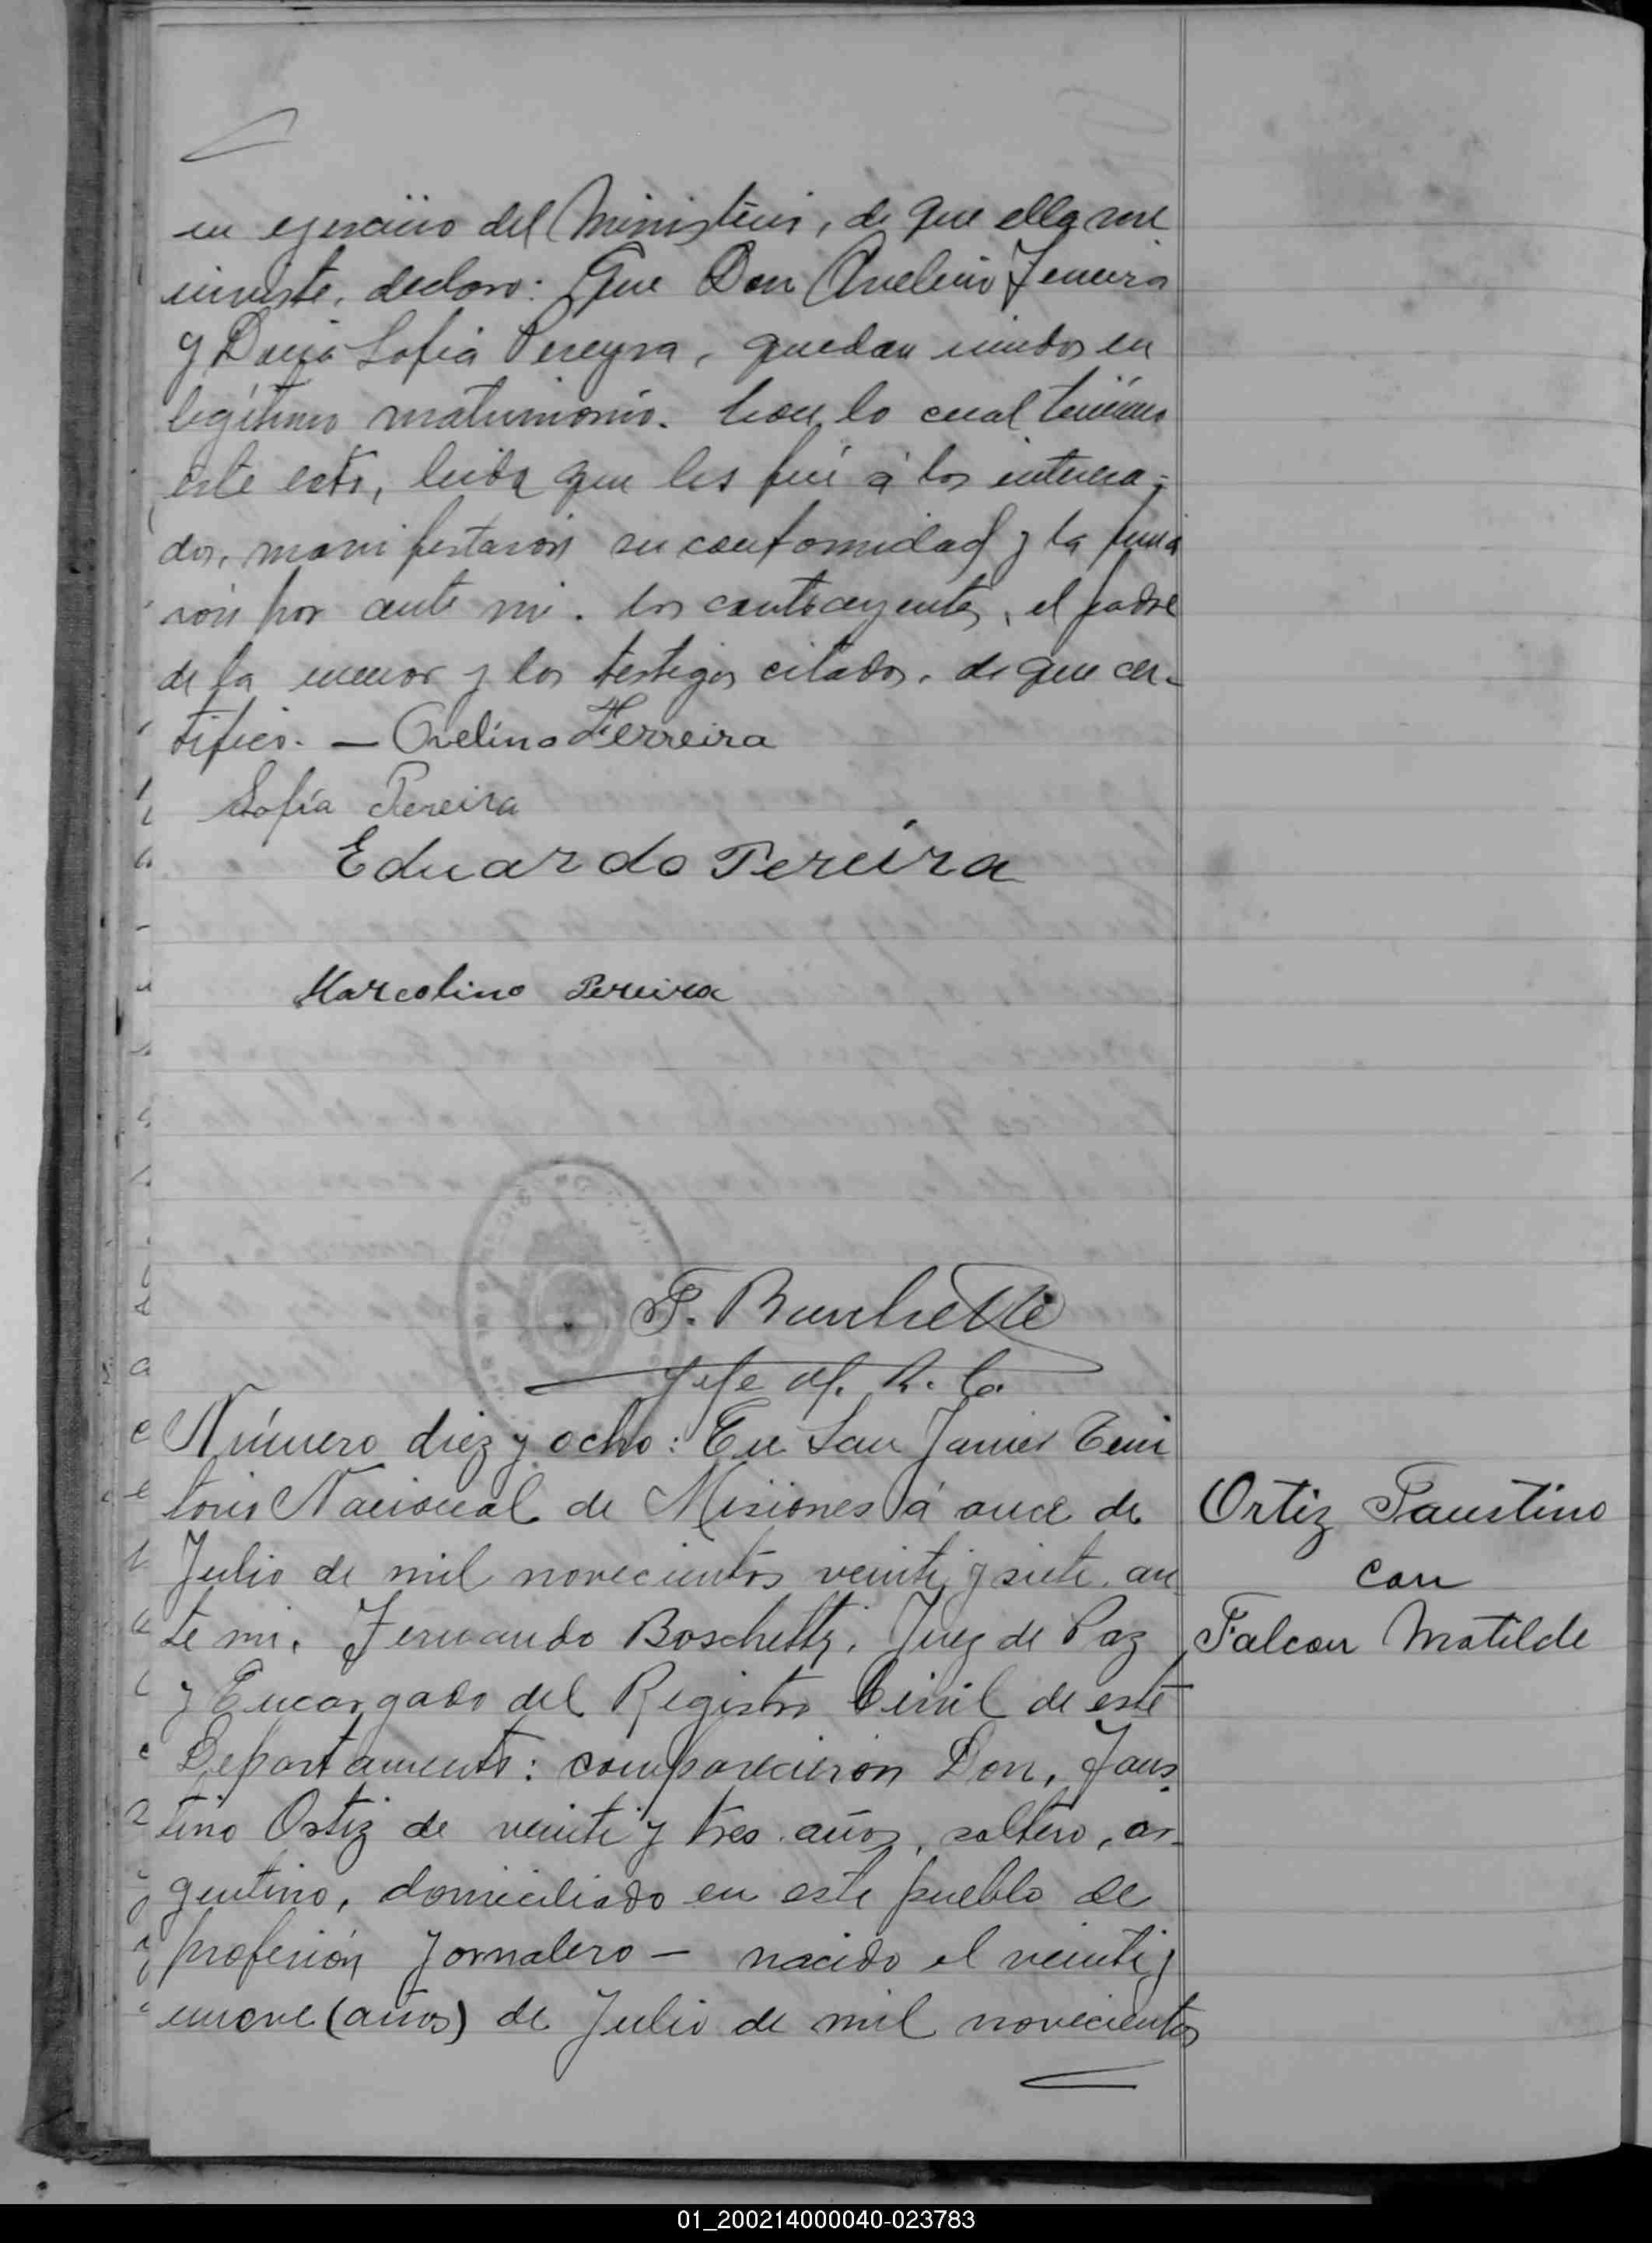 en ejercicio del Ministerio, de que ella me
inviste, declaro: Que Don Avelino Ferreira
y Doña Sofia Pereyra, quedan unidos en
legítimo matrimonio. Con lo cual terminó
este acto, leida que les fué á los interesa-
dos, manifestaron su conformidad y la firma
ron por ante mi. los contrayentes, el padre
de la menor y los testigos citados, de que cer-
tifico. — Avelino Ferreira
Sofía Pereira
Eduardo Pereira
Marcolino Pereira
F. Boschetti
Jefe del R. C.
Número diez y ocho: En San Javier Terri
torio Nacional de Misiones á once de
Julio de mil novecientos veinte y siete, an
te mi, Fernando Boschetti, Juez de Paz
y Encargado del Registro Civil de este
Departamento: comparecieron Don, Faus
tino Ortiz de veinte y tres años, soltero, ar-
gentino, domiciliado en este pueblo de
profesión Jornalero — nacido el veinte y
nueve (años) de Julio de mil novecientos
Ortiz Faustino
con
Falcon Matilde
01_200214000040-023783